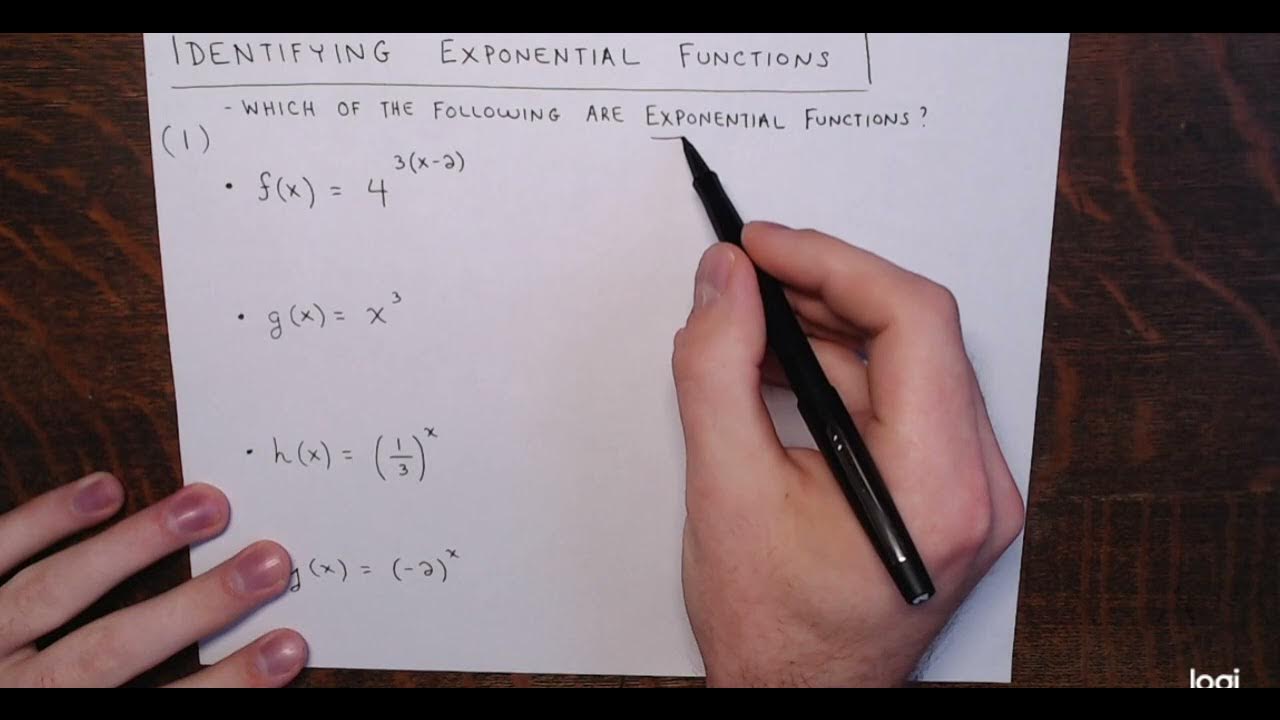 IDENTIFYING EXPONENTIAL FUNCTIONS
- WHICH OF THE FOLLOWING ARE EXPONENTIAL FUNCTIONS?
(1)
• f(x) = 4^{3(x-2)}
• g(x) = x^3
• h(x) = (1/3)^x
g(x) = (-2)^x
logi